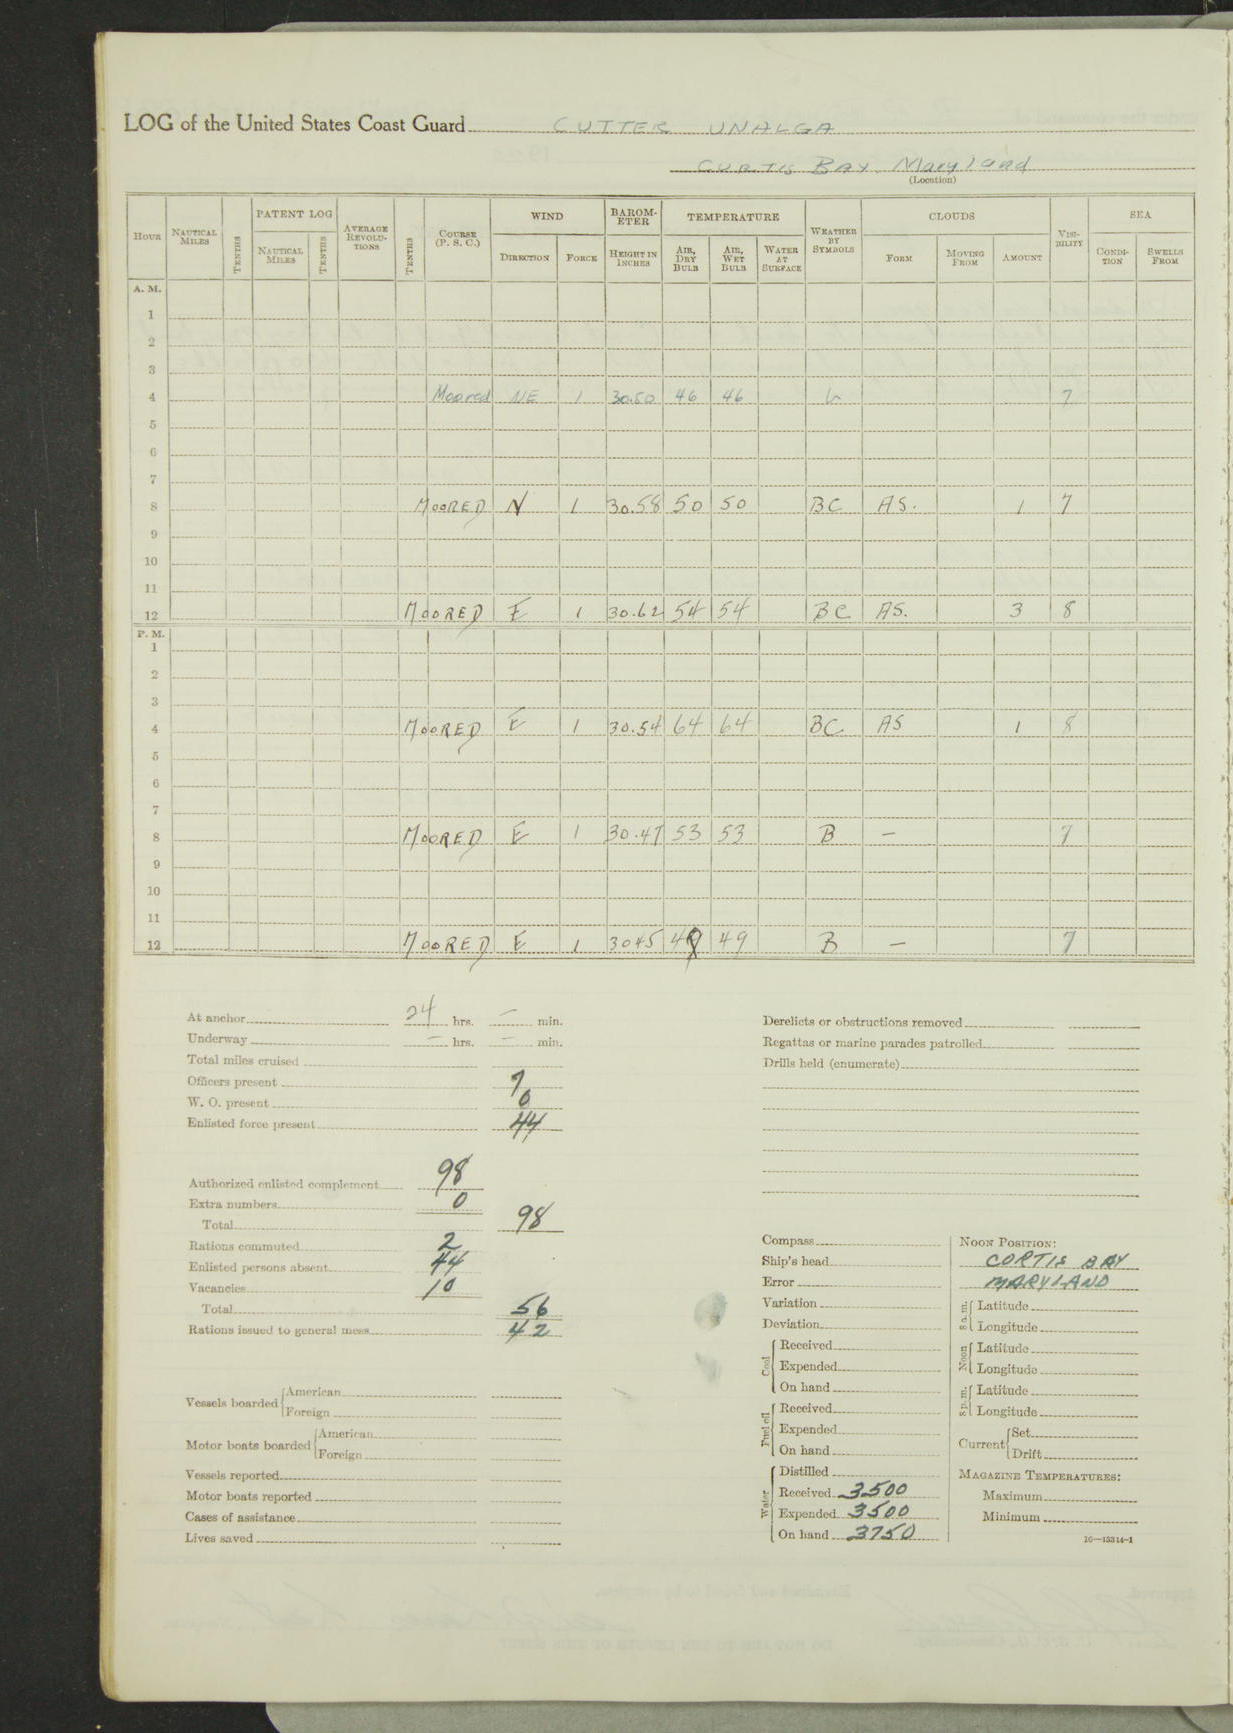 LOG of the United States Coast Guard CUTTER UNALGA
CURTIS BAY, Maryland
(Location)
HOUR NAUTICAL MILES TENTHS PATENT LOG NAUTICAL MILES TENTHS AVERAGE REVOLUTIONS TENTHS COURSE (P. S. C.) WIND DIRECTION FORCE BAROMETER HEIGHT IN INCHES TEMPERATURE AIR, DRY BULB AIR, WET BULB WATER AT SURFACE WEATHER BY SYMBOLS CLOUDS FORM MOVING FROM AMOUNT VISIBILITY SEA CONDITION SWELLS FROM
A. M.
1
2
3
4 Moored NE 1 30.50 46 46 b 7
5
6
7
8 MOORED N 1 30.58 50 50 BC AS. 1 7
9
10
11
12 MOORED E 1 30.62 54 54 BC AS. 3 8
P. M.
1
2
3
4 MOORED E 1 30.54 64 64 BC AS 1 8
5
6
7
8 MOORED E 1 30.47 53 53 B — 7
9
10
11
12 MOORED E 1 3045 49 49 B — 7
At anchor 24 hrs. — min.
Underway — hrs. — min.
Total miles cruised
Officers present 7
W. O. present 0
Enlisted force present 44
Authorized enlisted complement 98
Extra numbers 0
Total 98
Rations commuted 2
Enlisted persons absent 44
Vacancies 10
Total 56
Rations issued to general mess 42
Vessels boarded American
Foreign
Motor boats boarded American
Foreign
Vessels reported
Motor boats reported
Cases of assistance
Lives saved
Derelicts or obstructions removed
Regattas or marine parades patrolled
Drills held (enumerate)
Compass
Ship's head
Error
Variation
Deviation
Coal Received
Expended
On hand
Fuel oil Received
Expended
On hand
Water Distilled
Received 3500
Expended 3500
On hand 3750
NOON POSITION:
CURTIS BAY
MARYLAND
8 a. m. Latitude
Longitude
Noon Latitude
Longitude
8 p. m. Latitude
Longitude
Current Set
Drift
MAGAZINE TEMPERATURES:
Maximum
Minimum
16—15314-1